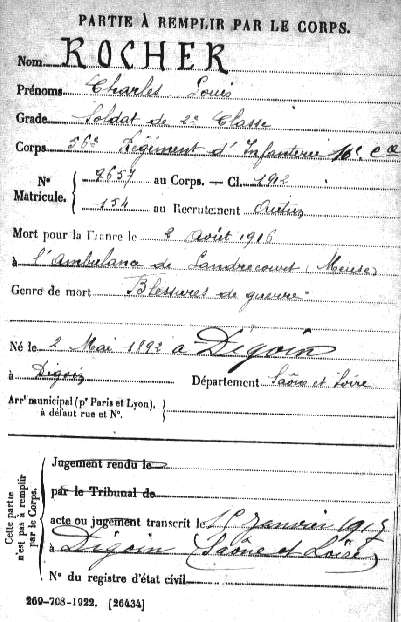 PARTIE À REMPLIR PAR LE CORPS.
Nom ROCHER
Prénoms Charles Louis
Grade Soldat de 2e Classe
Corps 56e Régiment d'Infanterie
N° Matricule. 7657 au Corps. — Cl. 1912
154 au Recrutement Autun
Mort pour la France le 2 Août 1916
à l'Ambulance de Landrecourt (Meuse)
Genre de mort Blessures de guerre
Né le 2 Mai 1892 à Digoin
à Digoin Département Saône et Loire
Arrt municipal (pr Paris et Lyon),
à défaut rue et N°.
Cette partie n'est pas à remplir par le Corps.
Jugement rendu le
par le Tribunal de
acte ou jugement transcrit le Janvier
à Digoin (Saône et Loire)
N° du registre d'état civil
269-708-1922. [26434]